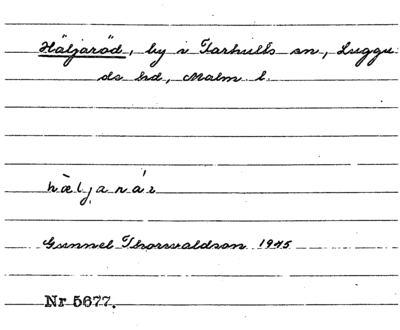 Häljaröd, by i Farhults sn, Luggu-
de hd, Malm l.
hæ̀ljará́ı
Gunnel Thorsvaldson 1975
Nr 5677.